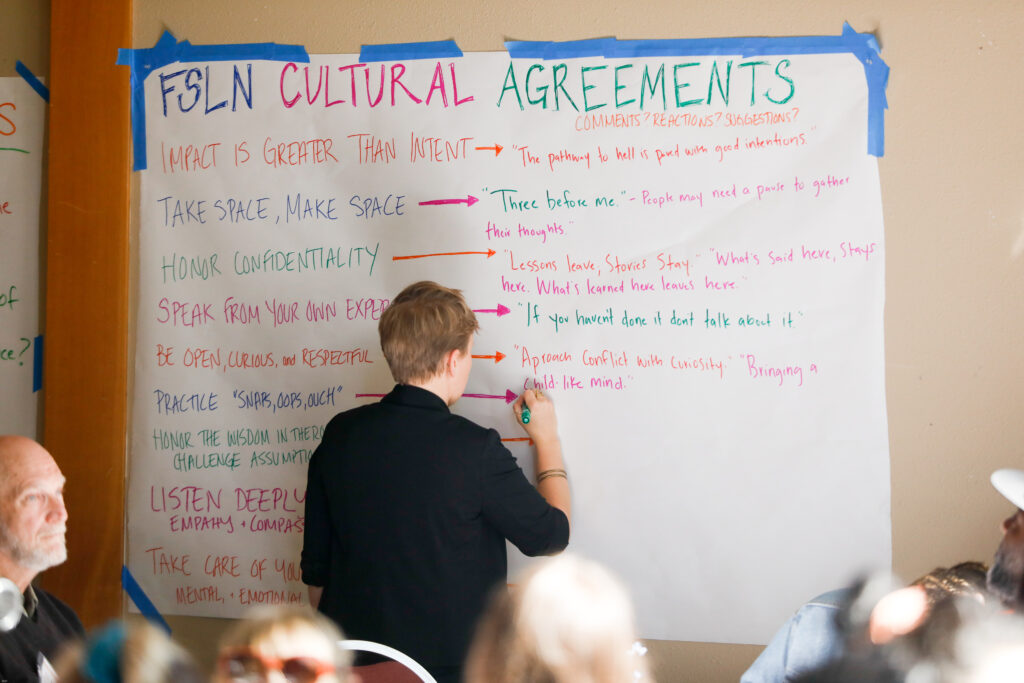 FSLN CULTURAL AGREEMENTS
COMMENTS? REACTIONS? SUGGESTIONS?
IMPACT IS GREATER THAN INTENT → "The pathway to hell is paved with good intentions."
TAKE SPACE, MAKE SPACE → "Three before me." - People may need a pause to gather
their thoughts."
HONOR CONFIDENTIALITY → "Lessons leave, Stories Stay." "What's said here, Stays
here. What's learned here leaves here."
SPEAK FROM YOUR OWN → "If you haven't done it dont talk about it."
BE OPEN, CURIOUS, and RESPECTFUL → "Aproach Conflict with Curiosity." "Bringing a
child-like mind."
PRACTICE "SNAPS, OOPS, OUCH" →
HONOR THE WISDOM IN THE
CHALLENGE
LISTEN DEEPLY
EMPATHY +
TAKE CARE OF
MENTAL, + EMOTIONAL
of
?